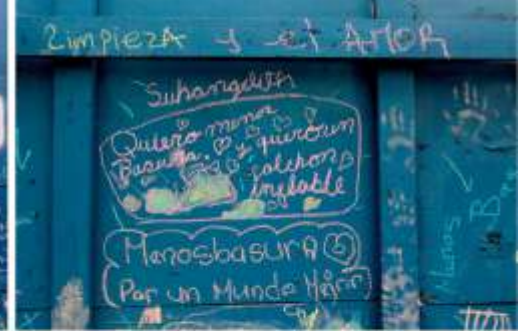 Limpieza y el AMOR
Suhangdith
Quiero menos
Basura. y quiero un
colchon
inflable
Menosbasura
Por un Mundo
Menos